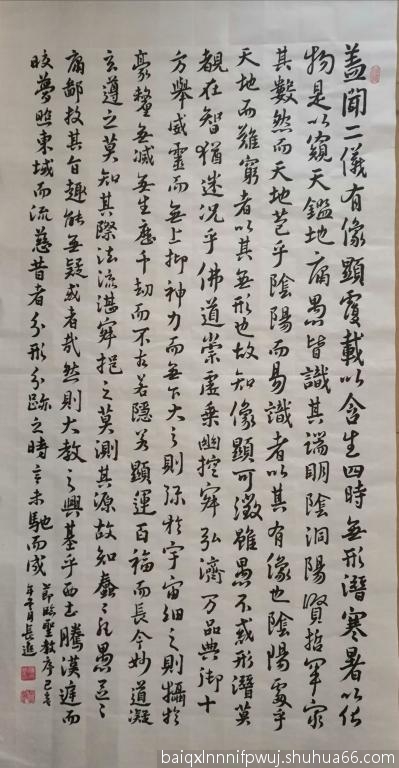 盖聞二儀有像顯覆載以含生四時無形潛寒暑以化
物是以窺天鑑地庸愚皆識其端明陰洞陽賢哲罕窮
其數然而天地苞乎陰陽而易識者以其有像也陰陽處乎
天地而難窮者以其無形也故知像顯可徵雖愚不惑形潛莫
覩在智猶迷況乎佛道崇虛乘幽控寂弘濟万品典御十
方舉威靈而無上抑神力而無下大之則彌於宇宙細之則攝於
豪釐無滅無生歷千劫而不古若隱若顯運百福而長今妙道凝
玄遵之莫知其際法流湛寂挹之莫測其源故知蠢蠢凡愚區區
庸鄙投其旨趣能無疑或者哉然則大教之興基乎西土騰漢庭而
皎夢照東域而流慈昔者分形分跡之時言未馳而成
節臨聖教序己亥
年 月長進
baiqxlnnnifpwuj.shuhua66.com